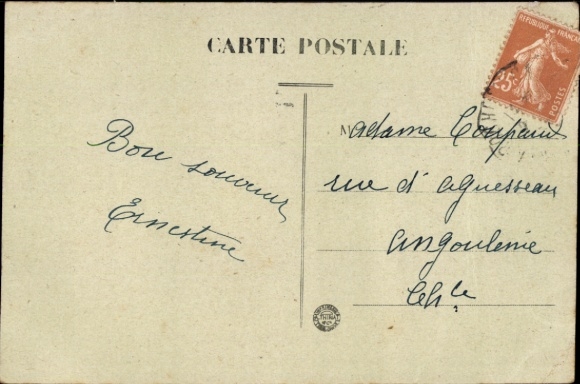 CARTE POSTALE
RÉPUBLIQUE FRANÇAISE
25c
POSTES
Bon souvenir
Ernestine
Madame
rue d'Aguesseau
Angoulême
Ch^te